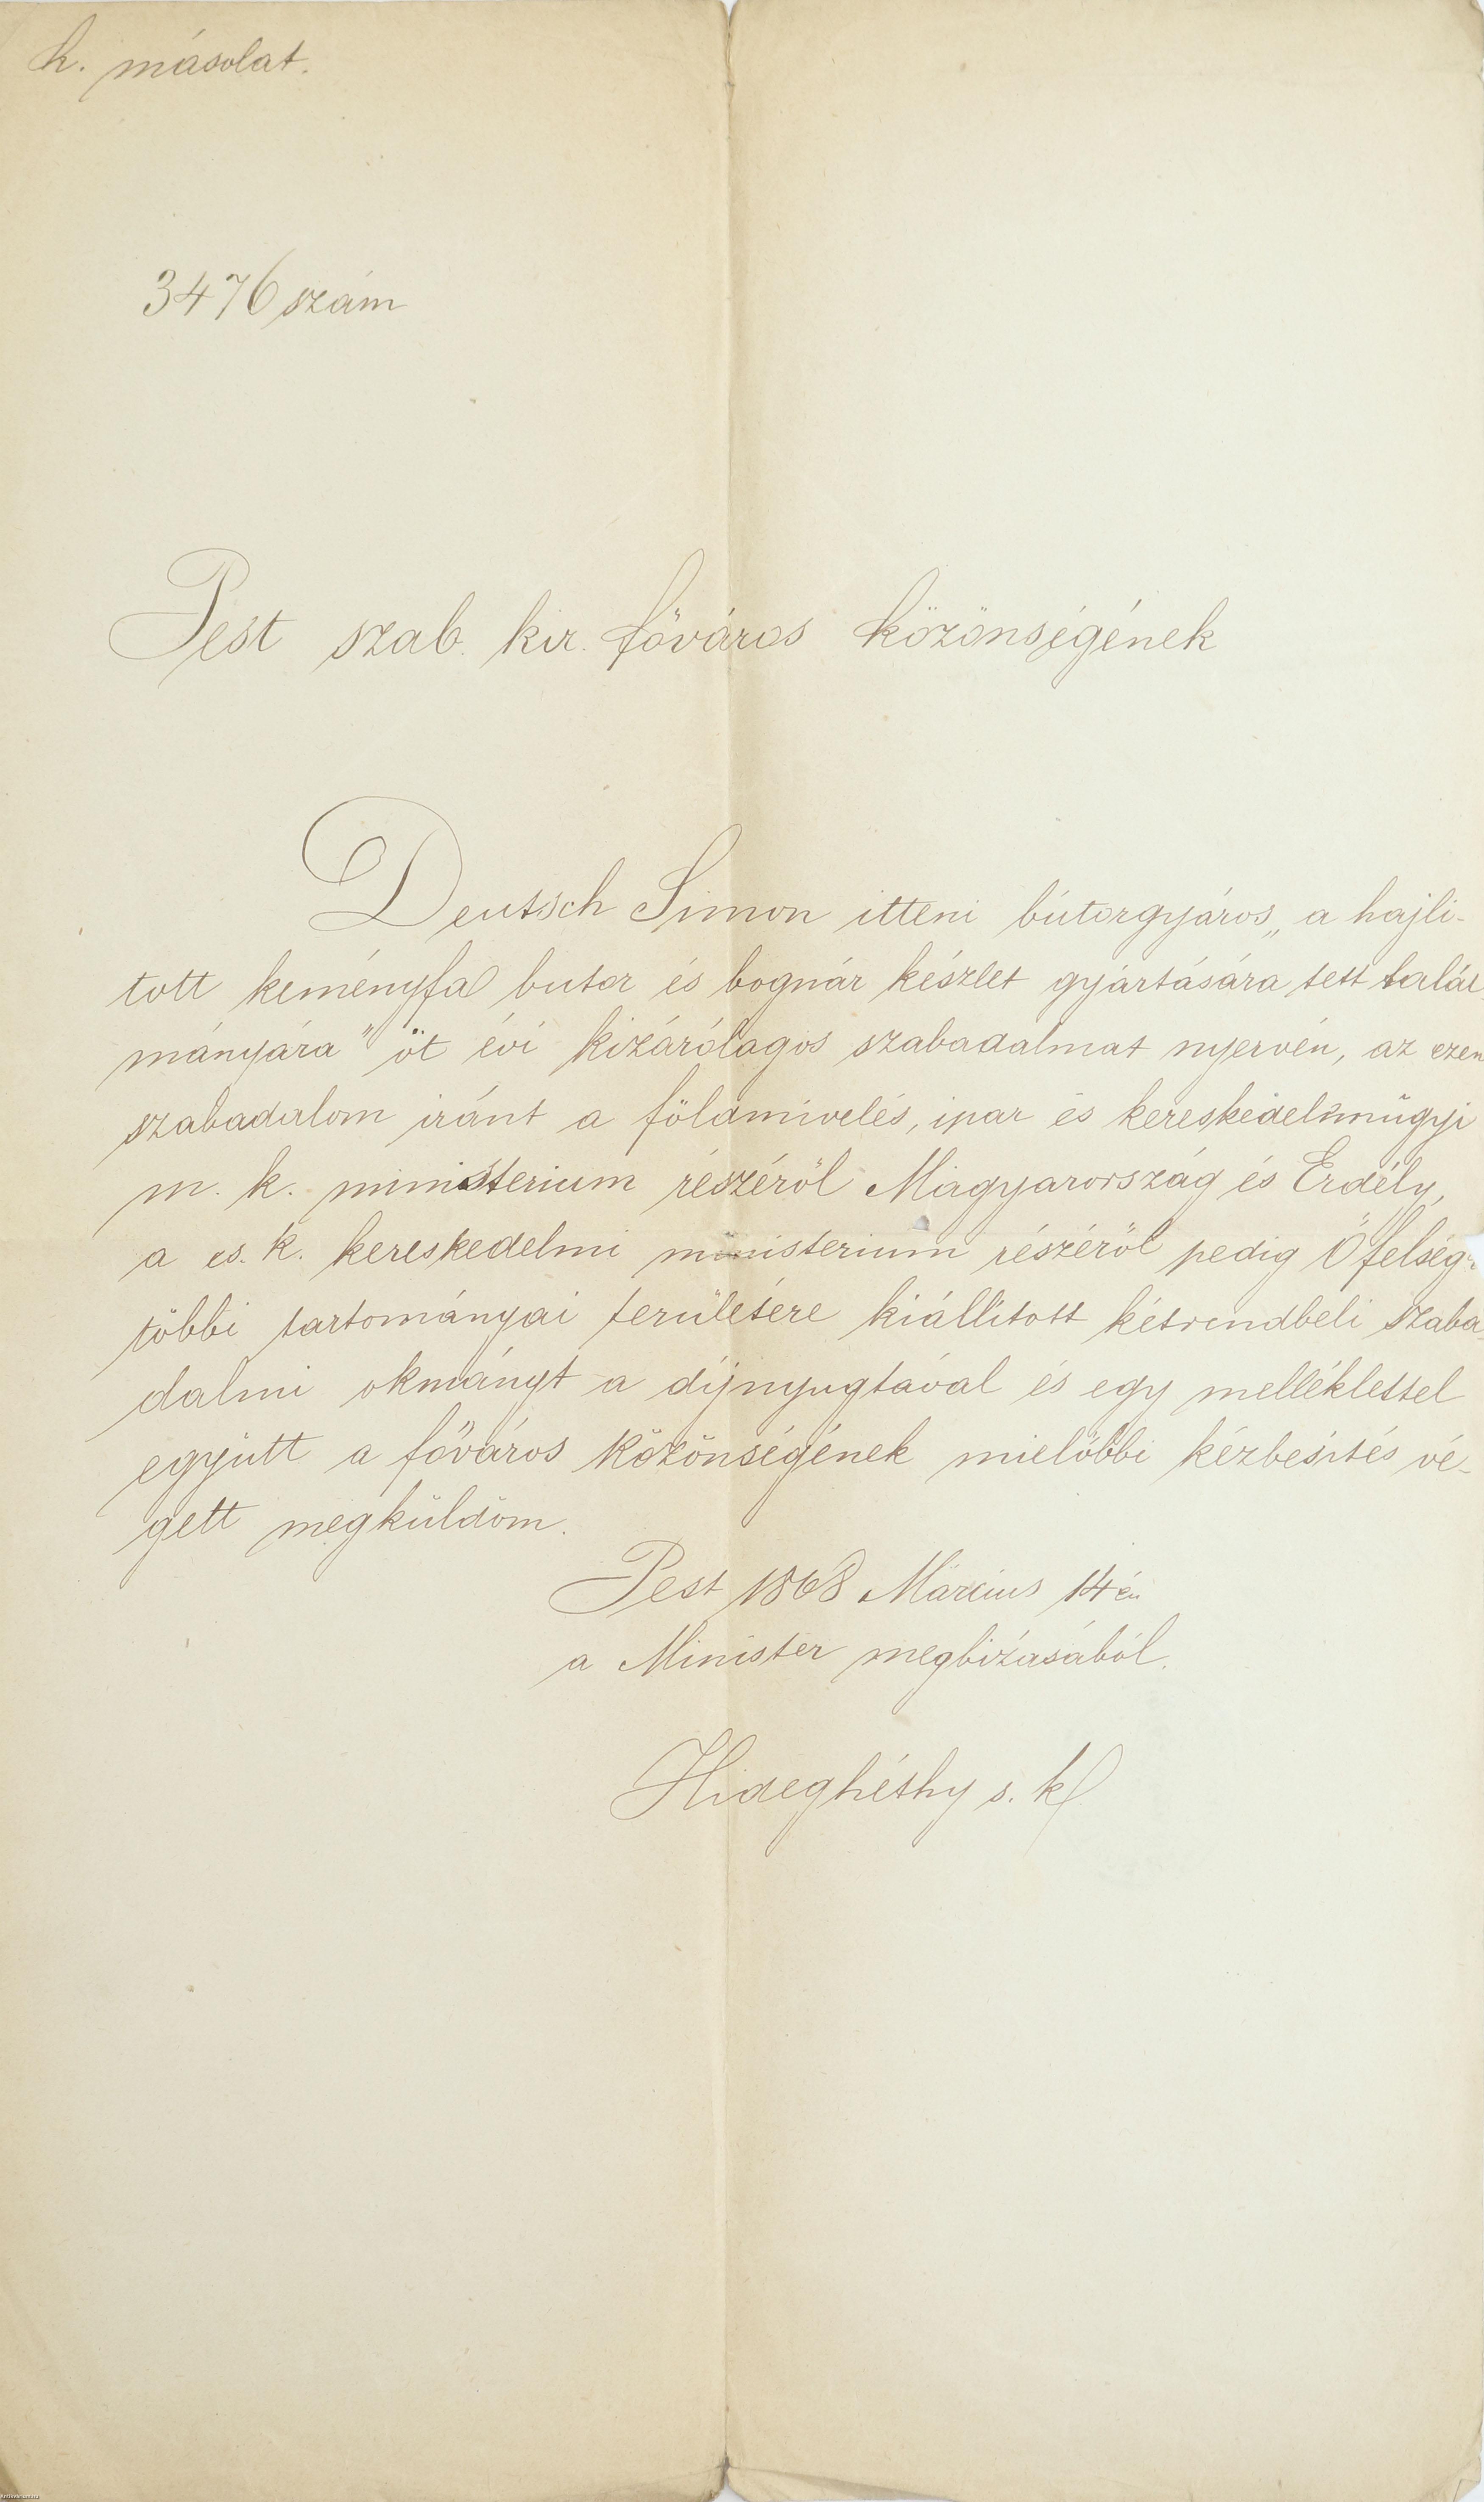 h. másolat.
3476 szám
Pest szab. kir. főváros közönségének
Deutsch Simon itteni bútorgyáros „a hajli-
tott keményfa butor és bognár készlet gyártására tett talál
mányára" öt évi kizárólagos szabadalmat nyervén, az ezen
szabadalom iránt a földmivelés, ipar és kereskedelmügyi
m. k. ministerium részéről Magyarország és Erdély,
a cs. k. kereskedelmi ministerium részéről pedig Ő felsége
többi tartományai területére kiállitott kétrendbeli szaba-
dalmi okmányt a díjnyugtával és egy melléklettel
együtt a főváros közönségének mielőbbi kézbesités vé-
gett megküldöm.
Pest 1868 Márczius 14én
a Minister megbizásából.
Hideghéthy s. k.